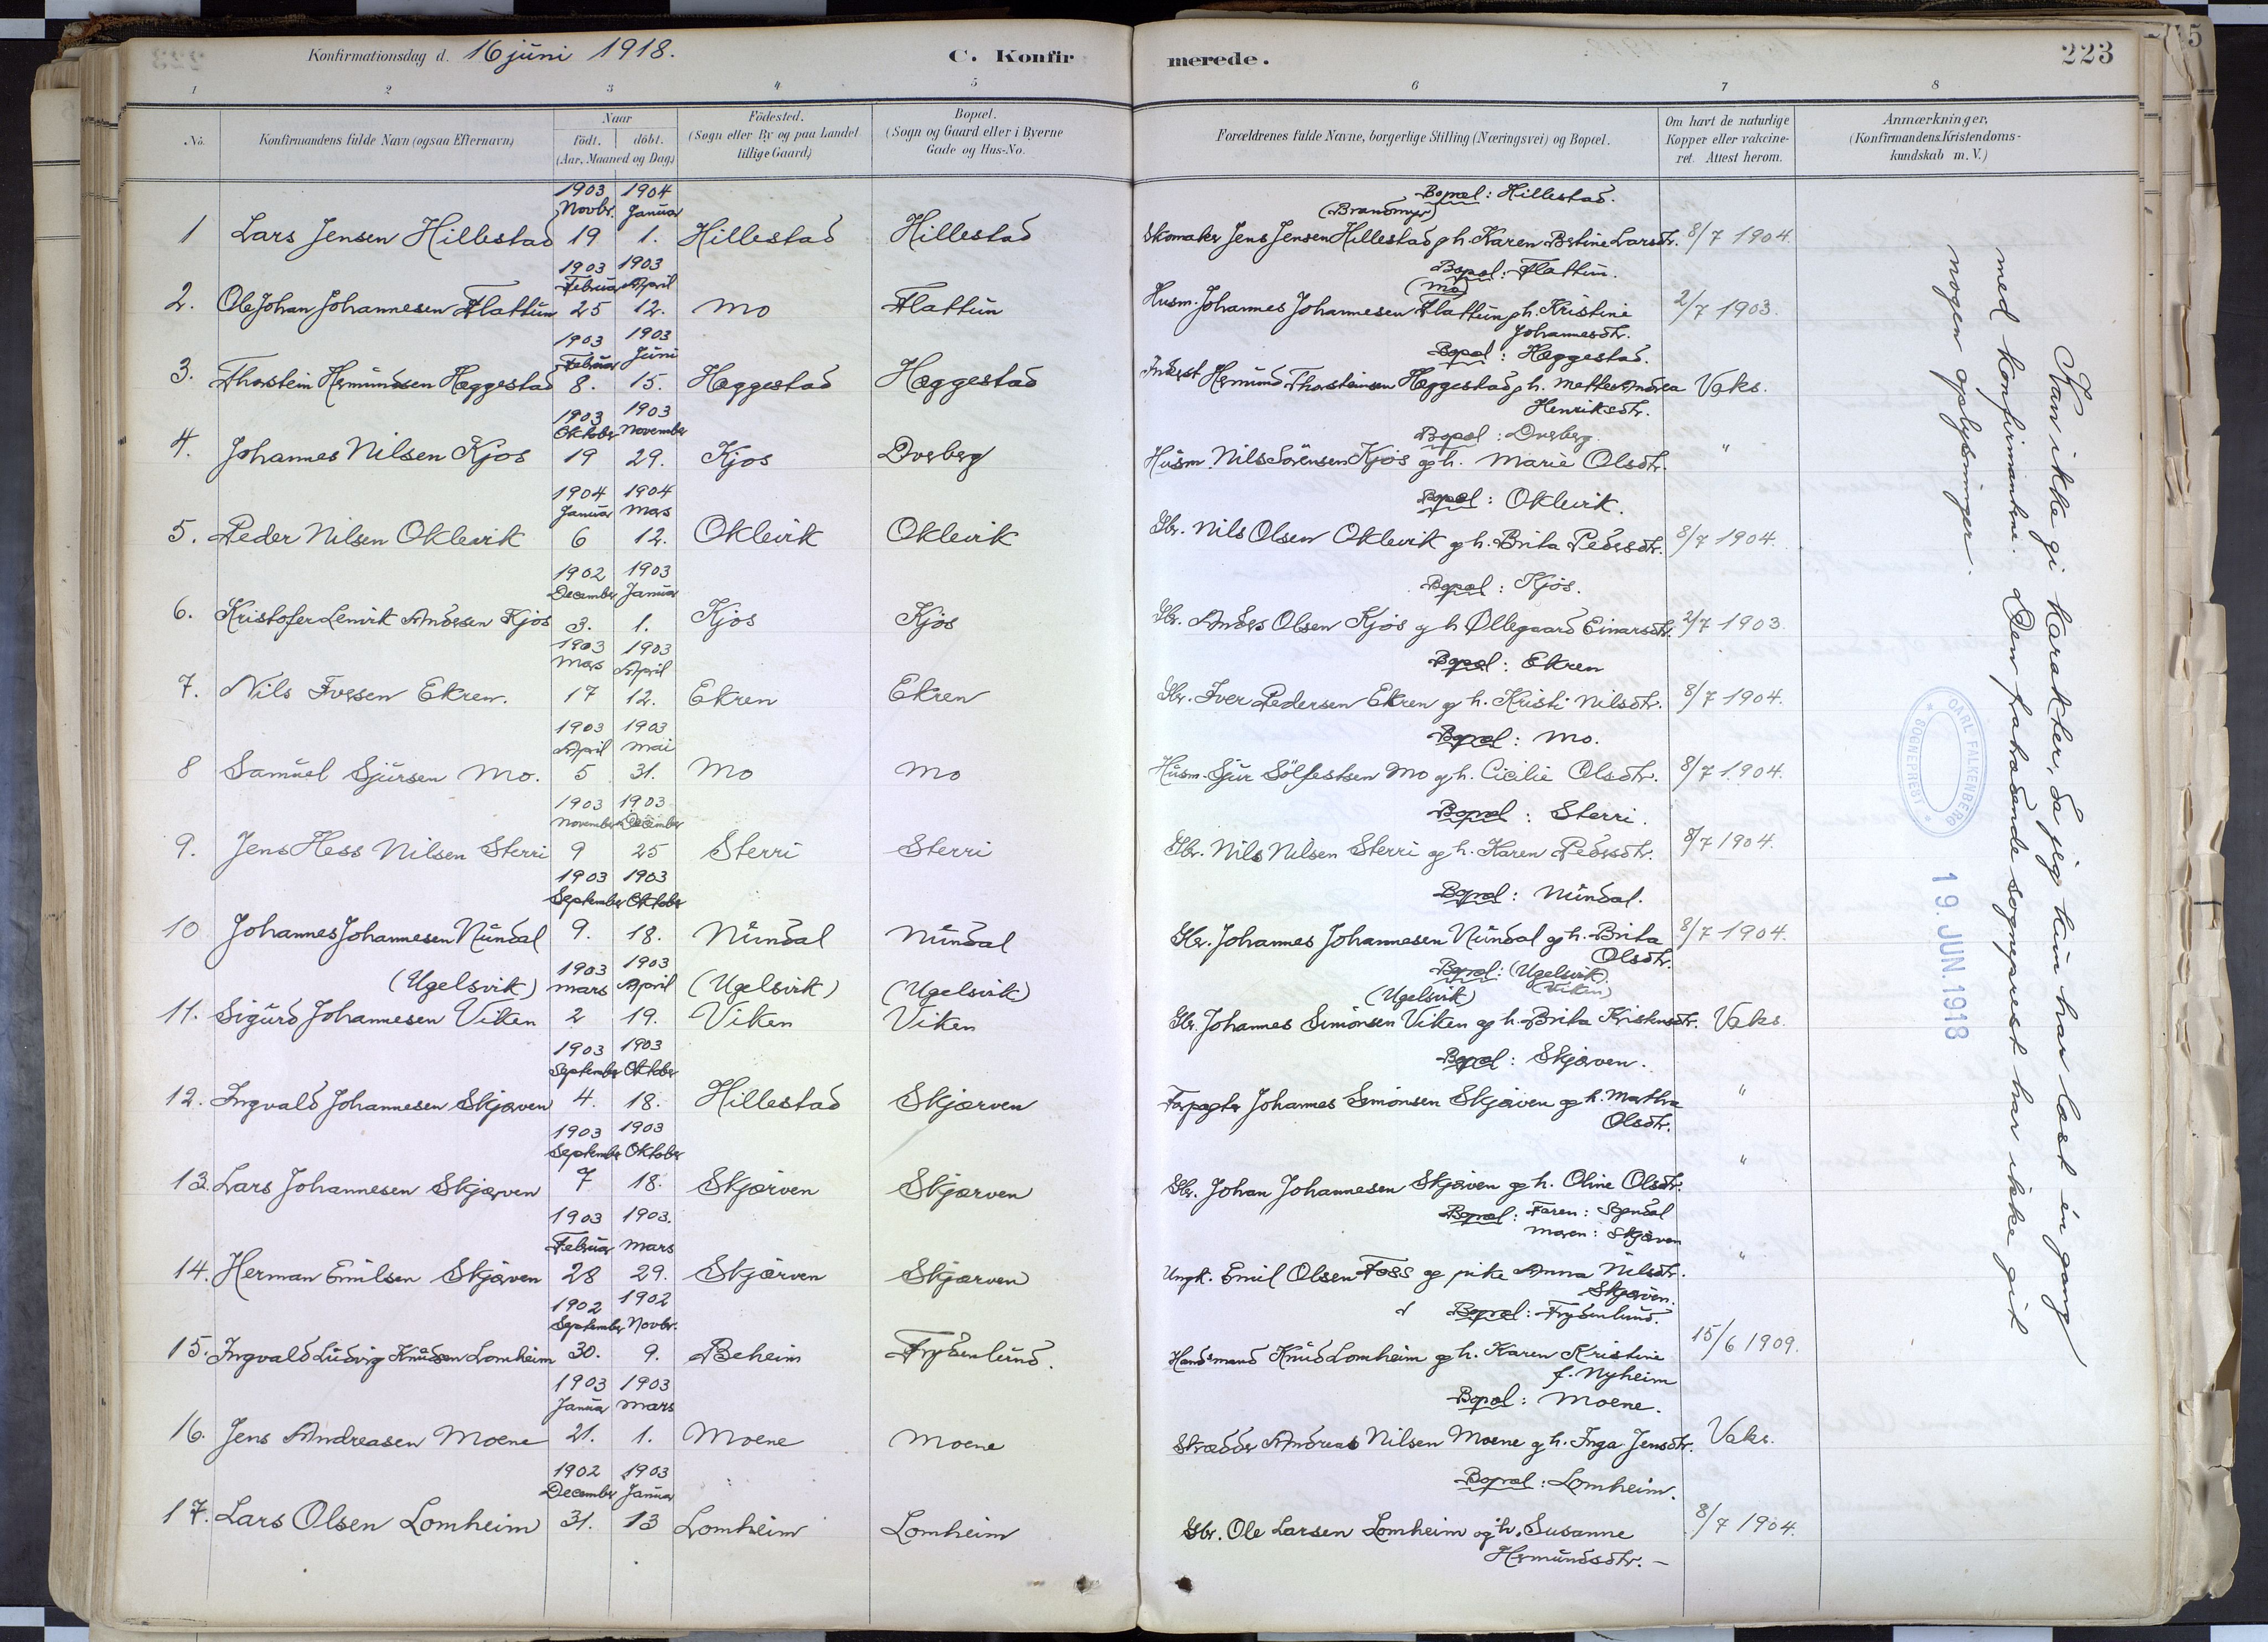 Konfirmationsdag d. 16 juni 1918. C. Konfir merede. 223
1 2 3 4 5 6 7 8
No. Konfirmandens fulde Navn (ogsaa Efternavn) Naar födt. döbt. (Aar, Maaned og Dag.) Födested. (Sogn eller By og paa Landet tillige Gaard) Bopæl. (Sogn og Gaard eller i Byerne Gade og Hus-No. Forældrenes fulde Navne, borgerlige Stilling (Næringsvei) og Bopæl. Om havt de naturlige Kopper eller vakcineret. Attest herom. Anmærkninger, (Konfirmandens Kristendomskundskab m. V.)
1903 1904 Bopæl: Hillestad.
Novbr. Januar (Brandmyr)
1 Lars Jensen Hillestad 19 1. Hillestad Hillestad Skomaker Jens Jensen Hillestad g h. Karen Bertine Larsdtr. 8/7 1904.
1903 1903 Bopæl: Flattun.
Februar April (Mo)
2. Ole Johan Johannesen Flattun 25 12. Mo Flattun Husm. Johannes Johannesen Flattun g h. Kristine 2/7 1903.
Johannesdtr.
1903 1903 Bopæl: Hæggestad.
Februar Juni
3. Thorstein Hermundsen Hæggestad 8. 15. Hæggestad Hæggestad Inderst Hermund Thorsteinsen Hæggestad g h. Mette Andrea Vaks.
Henriksdtr.
1903 1903 Bopæl: Dverberg.
Oktober November
4. Johannes Nilsen Kjos 19 29. Kjos Dverberg Husm. Nils Sörensen Kjos og h. Marie Olsdtr. "
1904 1904 Bopæl: Oklevik.
Januar Mars
5. Peder Nilsen Oklevik 6 12. Oklevik Oklevik Gbr. Nils Olsen Oklevik g h. Brita Pedersdtr. 8/7 1904.
1902 1903 Bopæl: Kjos.
December Januar
6. Kristofer Lenvik Andersen Kjos 3. 1. Kjos Kjos Gbr. Anders Olsen Kjos g h Øllegaard Einarsdtr. 2/7 1903.
1903 1903 Bopæl: Ekren
Mars April
7. Nils Iversen Ekren. 17 12. Ekren Ekren Gbr. Iver Pedersen Ekren g h. Kristi Nilsdtr. 8/7 1904.
1903 1903 Bopæl: Mo.
April Mai
8 Samuel Sjursen Mo. 5 31. Mo Mo Husm. Sjur Sölfestsen Mo g h. Cicilie Olsdtr. 8/7 1904.
1903 1903 Bopæl: Sterri.
November December
9. Jens Hess Nilsen Sterri 9 25 Sterri Sterri Gbr. Nils Nilsen Sterri og h. Karen Pedersdtr. 8/7 1904.
1903 1903 Bopæl: Nundal.
September Oktober
10 Johannes Johannesen Nundal 9. 18. Nundal Nundal Gbr. Johannes Johannesen Nundal og h. Brita 8/7 1904.
Olsdtr.
(Ugelsvik) 1903 Mars 1903 April (Ugelsvik) (Ugelsvik) (Ugelsvik) Bopæl: (Ugelsvik) (Viken)
11. Sigurd Johannesen Viken 2 19. Viken Viken Gbr. Johannes Simonsen Viken og h. Brita Kristensdtr. Vaks.
1903 1903 Bopæl: Skjærven.
September Oktober
12. Ingvald Johannesen Skjærven 4. 18. Hillestad Skjærven Forpagter Johannes Simonsen Skjærven og h. Martha "
Olsdtr.
1903 1903
September Oktober
13. Lars Johannesen Skjærven 7 18. Skjærven Skjærven Gbr. Johan Johannesen Skjærven og h. Oline Olsdtr. "
1903 1903. Bopæl: Faren: Sogndal
Februar Mars Moren: Skjærven
14. Herman Emilsen Skjærven 28 29. Skjærven Skjærven Ungk. Emil Olsen Foss og pike Anna Nilsdtr. "
Skjærven.
1902 1902 Bopæl: Frydenlund.
September Novbr.
15. Ingvald Ludvig Knudsen Lomheim 30. 9. Beheim Frydenlund. Handsmand Knud Lomheim og h. Karen Kristine 15/6 1909.
f. Nyheim
1903 1903 Bopæl: Moene.
Januar Mars
16. Jens Andreasen Moene 21. 1. Moene Moene Skrædder Andreas Nilsen Moene g h. Inga Jensdtr. Vaks.
1902 1903 Bopæl: Lomheim.
December Januar
17. Lars Olsen Lomheim 31. 13 Lomheim Lomheim Gbr. Ole Larsen Lomheim og h. Susanne 8/7 1904.
Hermundsdtr. –
Kan ikke gi karakter, da jeg kun har læst én gang
med konfirmantene. Den fratrædende sogneprest har ikke git
nogen oplysninger.
CARL FALKENBERG
SOGNEPREST
19. JUN. 1918